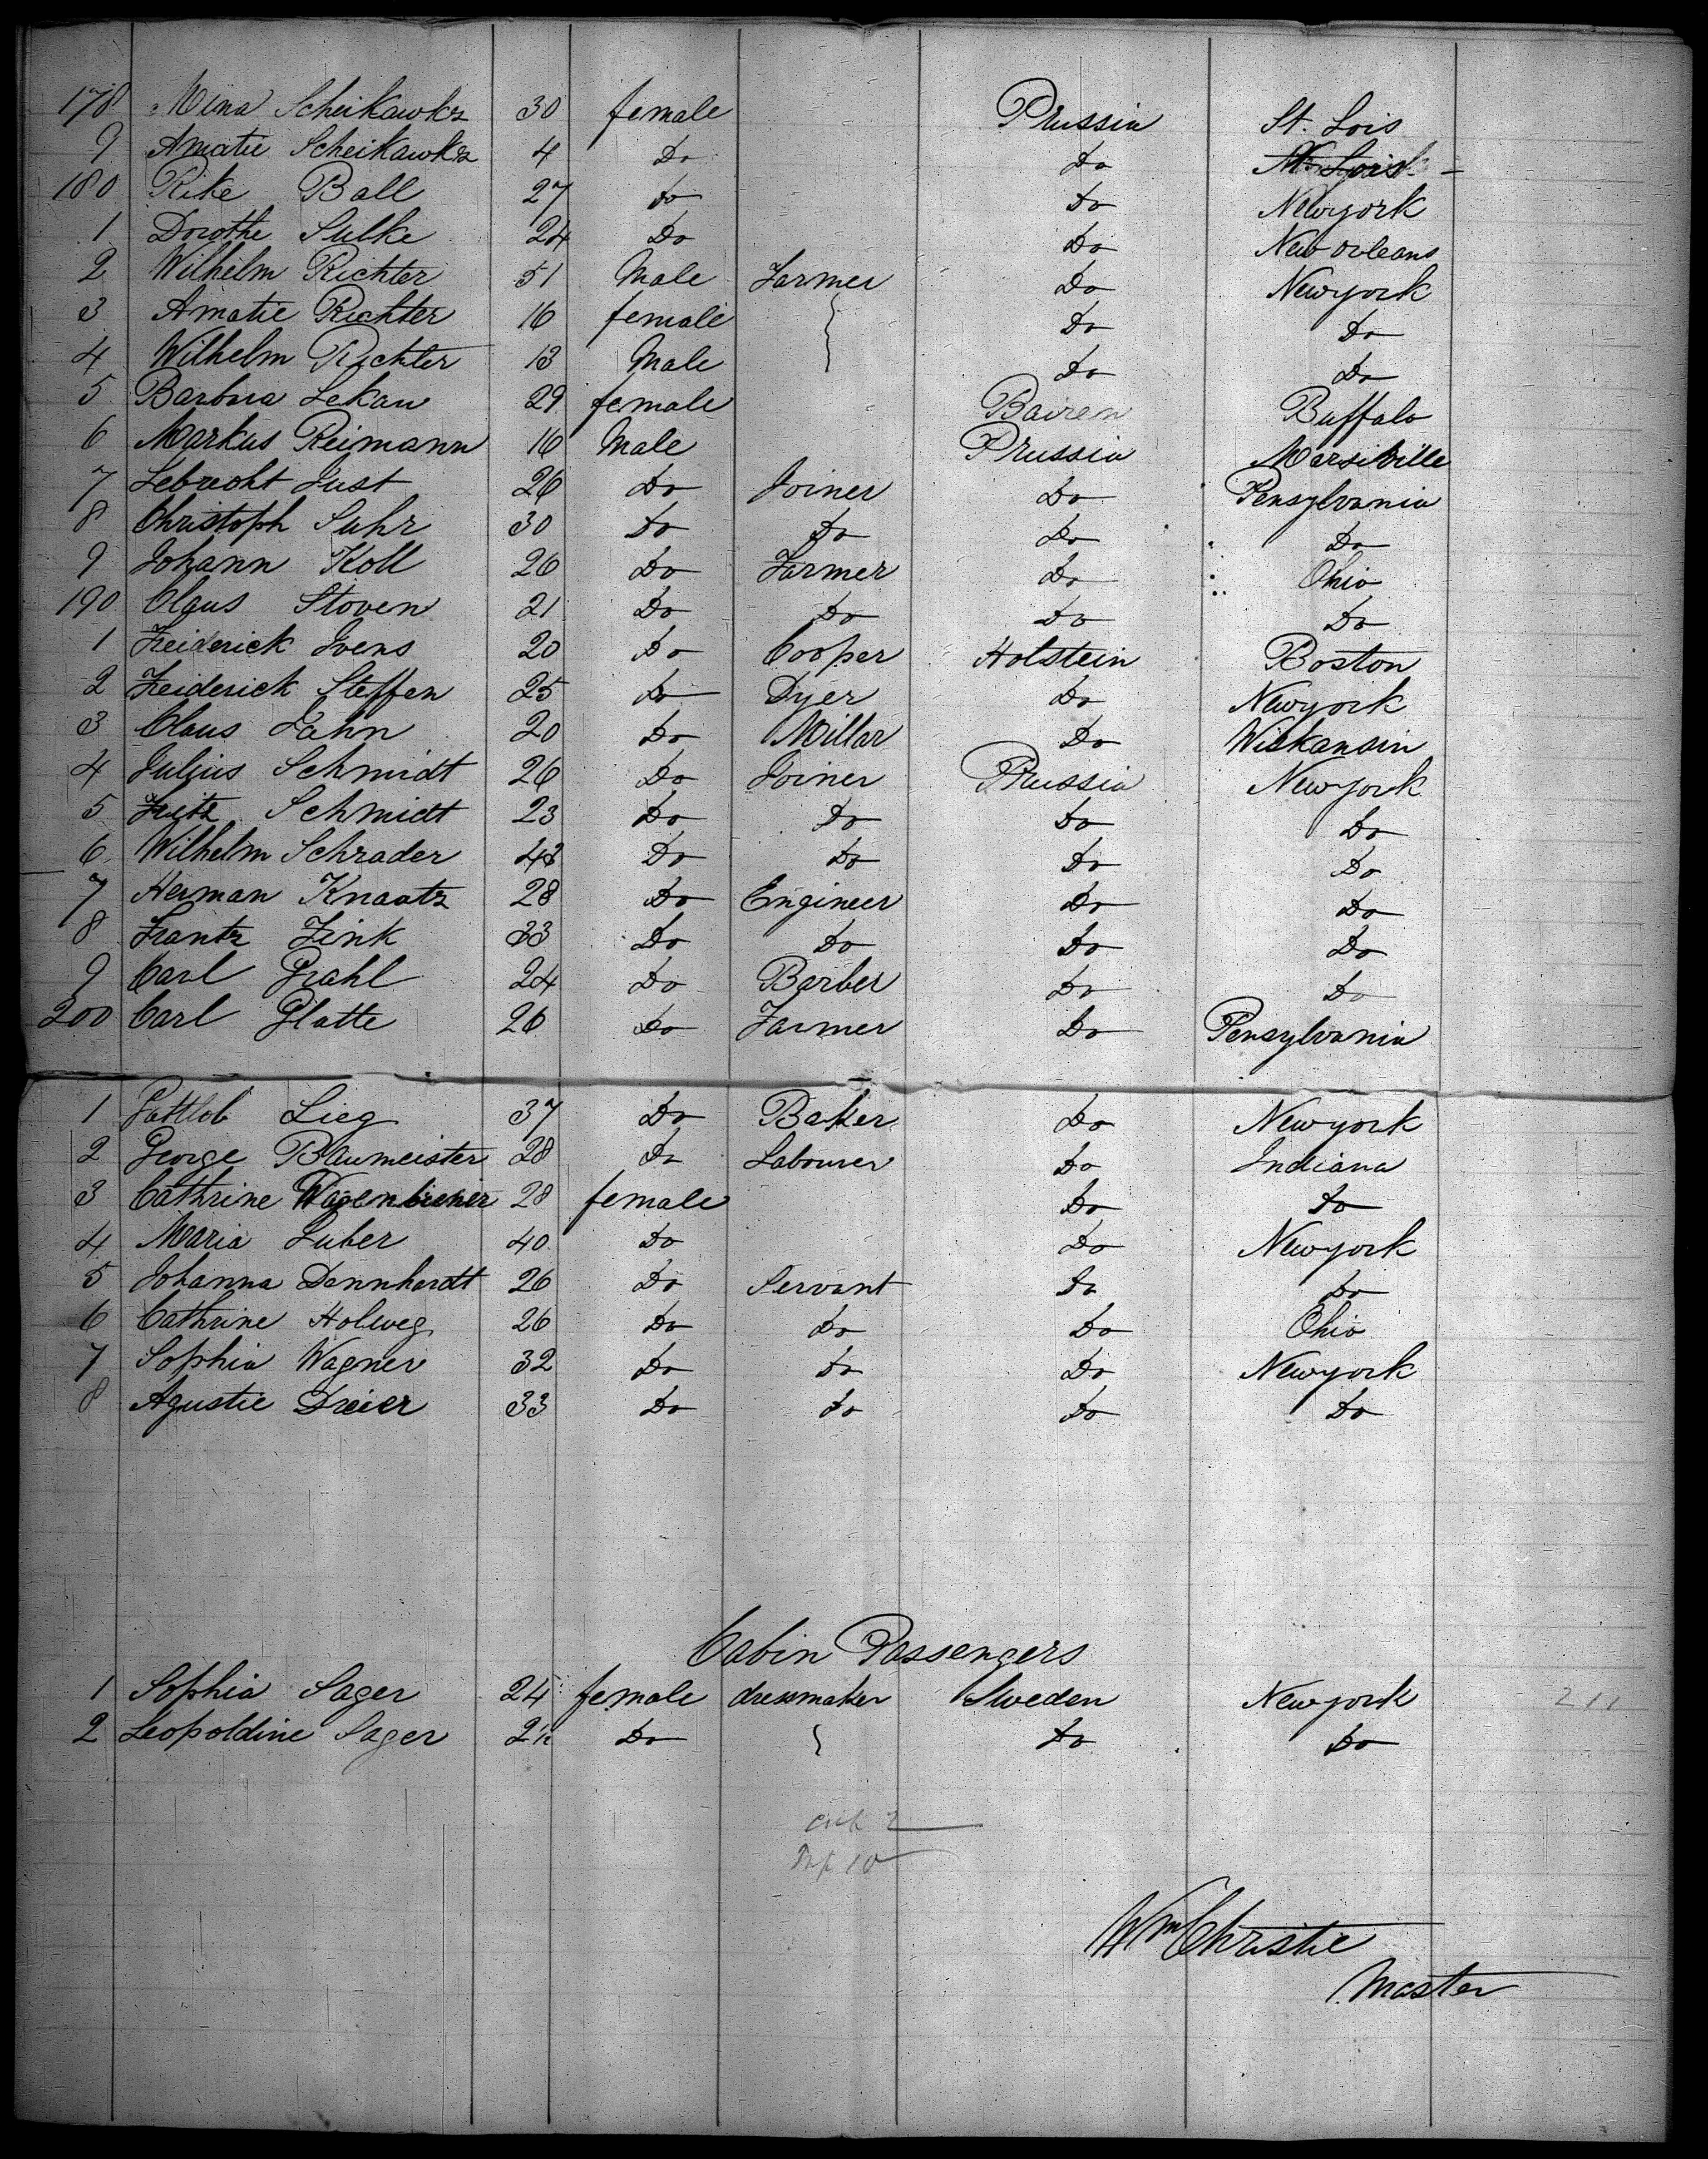 178 Mina Scheikawkz 30 female Prussia St. Lois
9 Amatie Scheikawkz 4 Do Do St. Lois
180 Rike Ball 27 Do Do Newyork
1 Dorothe Sulke 24 Do Do New orleans
2 Wilhelm Richter 51 Male Farmer Do Newyork
3 Amatie Richter 16 female Do Do
4 Wilhelm Richter 13 Male Do Do
5 Barbra Lekau 29 female Bairen Buffalo
6 Markus Reimann 16 Male Prussia
7 Lebrecht Just 26 Do Joiner Do Pensylvania
8 Christoph Suhr 30 Do Do Do Do
9 Johann Koll 26 Do Farmer Do Ohio
190 Claus Stoven 21 Do Do Do Do
1 Freiderick Ivens 20 Do Cooper Holstein Boston
2 Freiderick Steffen 25 Do Dyer Do Newyork
3 Claus Jahn 20 Do Millar Do Wiskansin
4 Julius Schmidt 26 Do Joiner Prussia Newyork
5 Fritz Schmidt 23 Do Do Do Do
6 Wilhelm Schrader 43 Do Do Do Do
7 Herman Knaatz 28 Do Engineer Do Do
8 Frantz Fink 33 Do Do Do Do
9 Carl Grahl 24 Do Barber Do Do
200 Carl Glatte 26 Do Farmer Do Pensylvania
1 Gottlob Lieg 37 Do Baker Do Newyork
2 George Baumeister 28 Do Labourer Do Indiana
3 Cathrine 28 female Do Do
4 Maria Luber 40 Do Do Newyork
5 Johanna Dannhardt 26 Do Servant Do Do
6 Cathrine Holweg 26 Do Do Do Ohio
7 Sophia Wagner 32 Do Do Do Newyork
8 Agustie Dreier 33 Do Do Do Do
Cabin Passengers
1 Sophia Sager 24 female dressmaker Sweden Newyork 211
2 Leopoldine Sager 2½ Do Do Do
Wm Christie
Master